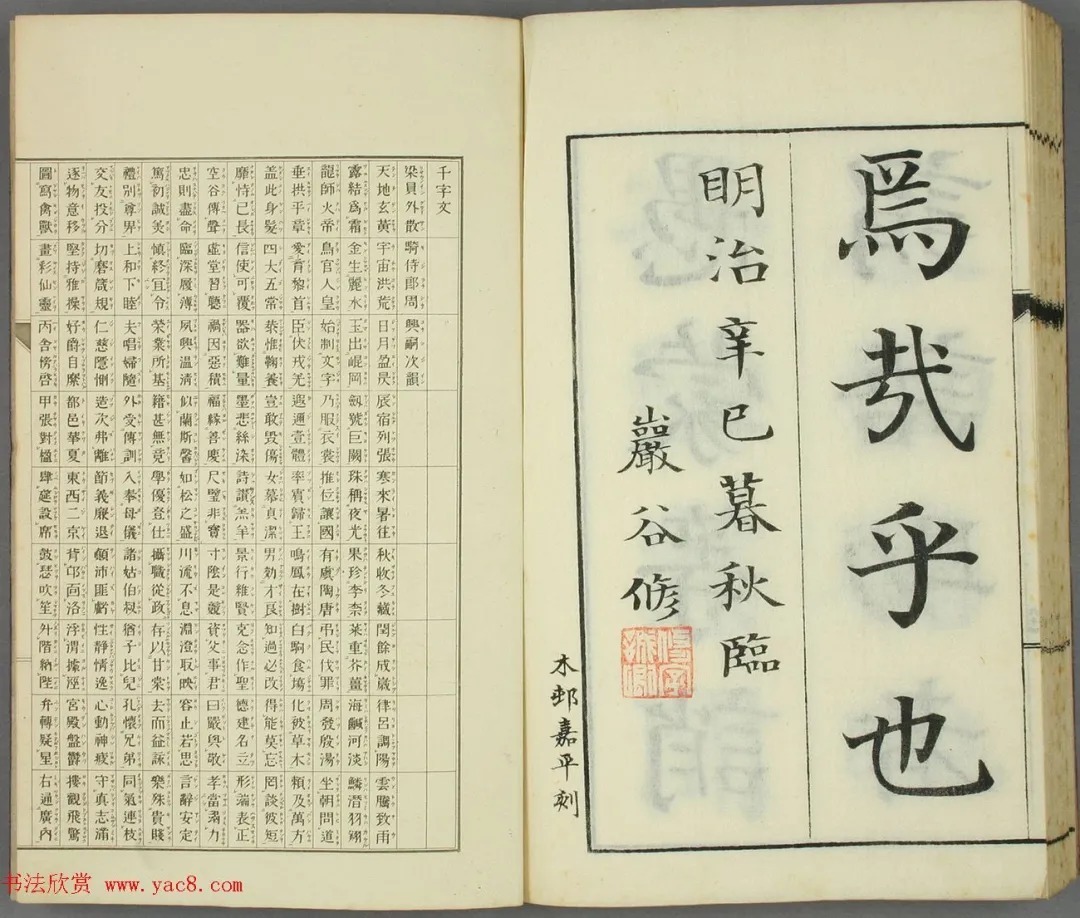 焉哉乎也
明治辛巳暮秋臨
巖谷脩
木邨嘉平刻
千字文
梁員外散 騎侍郎周 興嗣次韻
天地玄黃 宇宙洪荒 日月盈昃 辰宿列張 寒來暑往 秋收冬藏 閏餘成歲 律呂調陽 雲騰致雨
露結爲霜 金生麗水 玉出崐岡 劔號巨闕 珠稱夜光 果珍李柰 菜重芥薑 海鹹河淡 鱗潛羽翔
龍師火帝 鳥官人皇 始制文字 乃服衣裳 推位讓國 有虞陶唐 弔民伐罪 周發殷湯 坐朝問道
垂拱平章 愛育黎首 臣伏戎羌 遐邇壹體 率賓歸王 鳴鳳在樹 白駒食場 化被草木 賴及萬方
蓋此身髮 四大五常 恭惟鞠養 豈敢毀傷 女慕貞潔 男効才良 知過必改 得能莫忘 罔談彼短
靡恃己長 信使可覆 器欲難量 墨悲絲染 詩讚羔羊 景行維賢 克念作聖 德建名立 形端表正
空谷傳聲 虛堂習聽 禍因惡積 福緣善慶 尺璧非寶 寸陰是競 資父事君 曰嚴與敬 孝當竭力
忠則盡命 臨深履薄 夙興溫凊 似蘭斯馨 如松之盛 川流不息 淵澄取映 容止若思 言辭安定
篤初誠美 慎終宜令 榮業所基 籍甚無竟 學優登仕 攝職從政 存以甘棠 去而益詠 樂殊貴賤
禮別尊卑 上和下睦 夫唱婦隨 外受傅訓 入奉母儀 諸姑伯叔 猶子比兒 孔懷兄弟 同氣連枝
交友投分 切磨箴規 仁慈隱惻 造次弗離 節義廉退 顛沛匪虧 性靜情逸 心動神疲 守真志滿
逐物意移 堅持雅操 好爵自縻 都邑華夏 東西二京 背邙面洛 浮渭據涇 宮殿盤鬱 樓觀飛驚
圖寫禽獸 畫彩仙靈 丙舍傍啓 甲帳對楹 肆筵設席 鼓瑟吹笙 升階納陛 弁轉疑星 右通廣內
书法欣赏 www.yac8.com